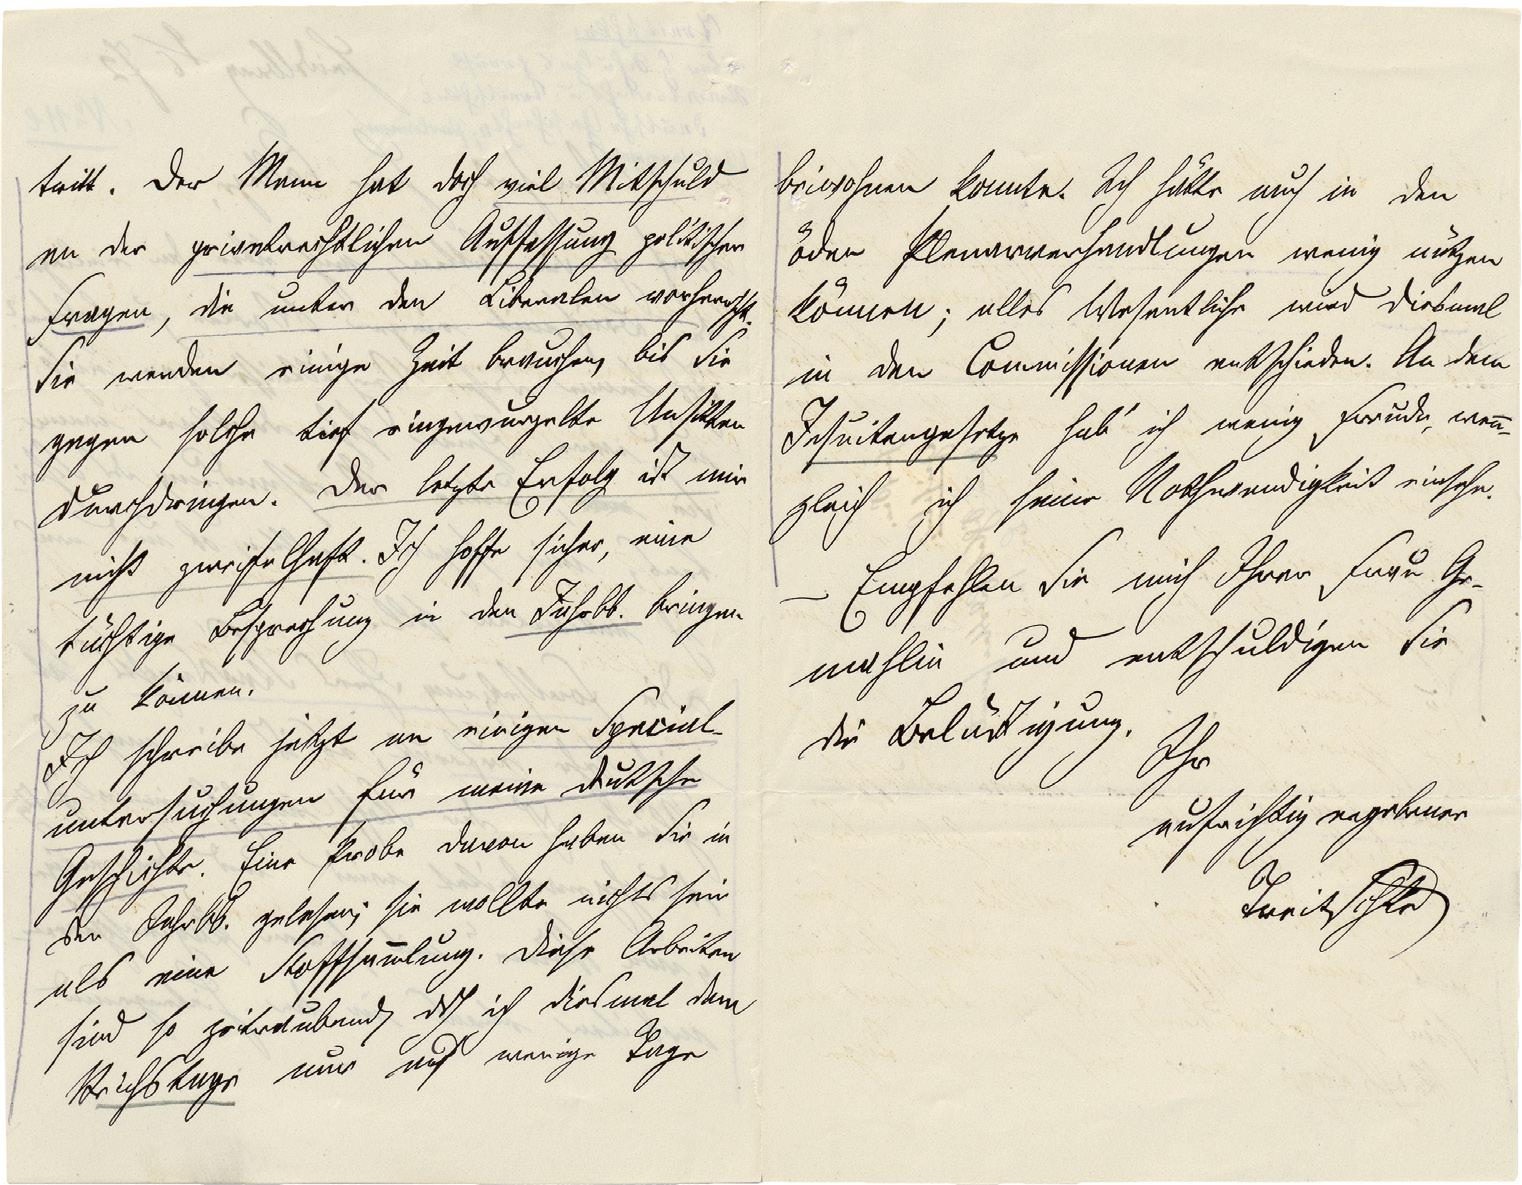 tritt. Der Mann hat doch viel Mitschuld
an der privatrechtlichen Auffassung politischer
Fragen, die unter den Liberalen vorherrscht.
Sie werden einige Zeit brauchen, bis Sie
gegen solche tief eingewurzelte Unsitten
durchdringen. Der letzte Erfolg ist mir
nicht zweifelhaft. Ich hoffe sicher, eine
tüchtige Besprechung in den Jahrbb. bringen
zu können.
Ich schreibe jetzt an einigen Special-
untersuchungen für meine deutsche
Geschichte. Eine Probe davon haben Sie in
den Jahrbb. gelesen; sie wollte nichts sein
als eine Stoffsam̄lung. Diese Arbeiten
sind so zeitraubend, daß ich diesmal dem
Reichstage nur auf wenige Tage
beiwohnen konnte. Ich hätte auch in den
öden Plenarverhandlungen wenig nützen
können; alles Wesentliche wird diesmal
in den Commissionen entschieden. An dem
Jesuitengesetze hab' ich wenig Freude, wen̄-
gleich ich seine Nothwendigkeit einsehe.
— Empfehlen Sie mich Ihrer Frau Ge-
mahlin und entschuldigen Sie
die Belästigung.
Ihr
aufrichtig ergebener
Treitschke